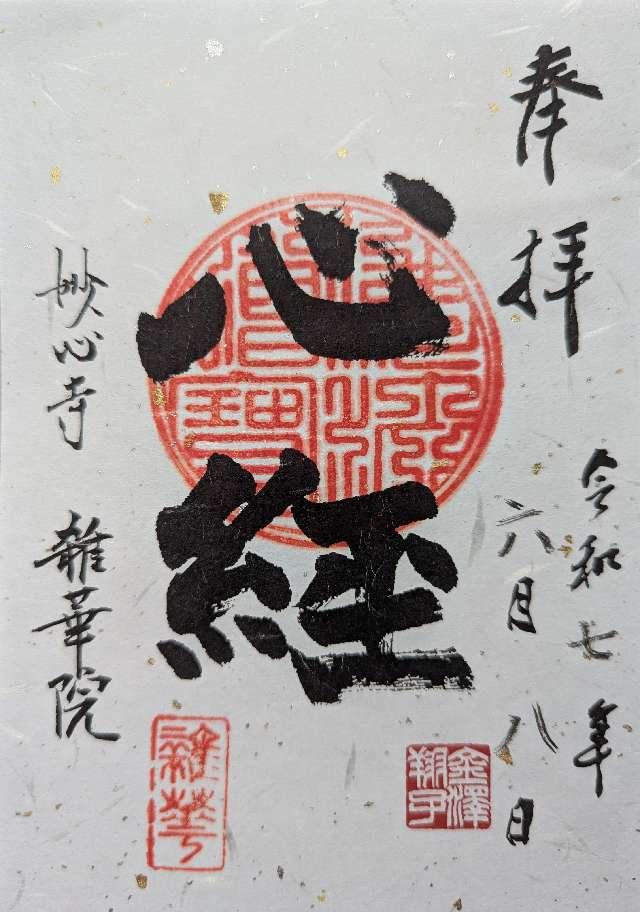 奉拝
令和七年
六月八日
心経
妙心寺 雑華院
金澤
翔子
雑華